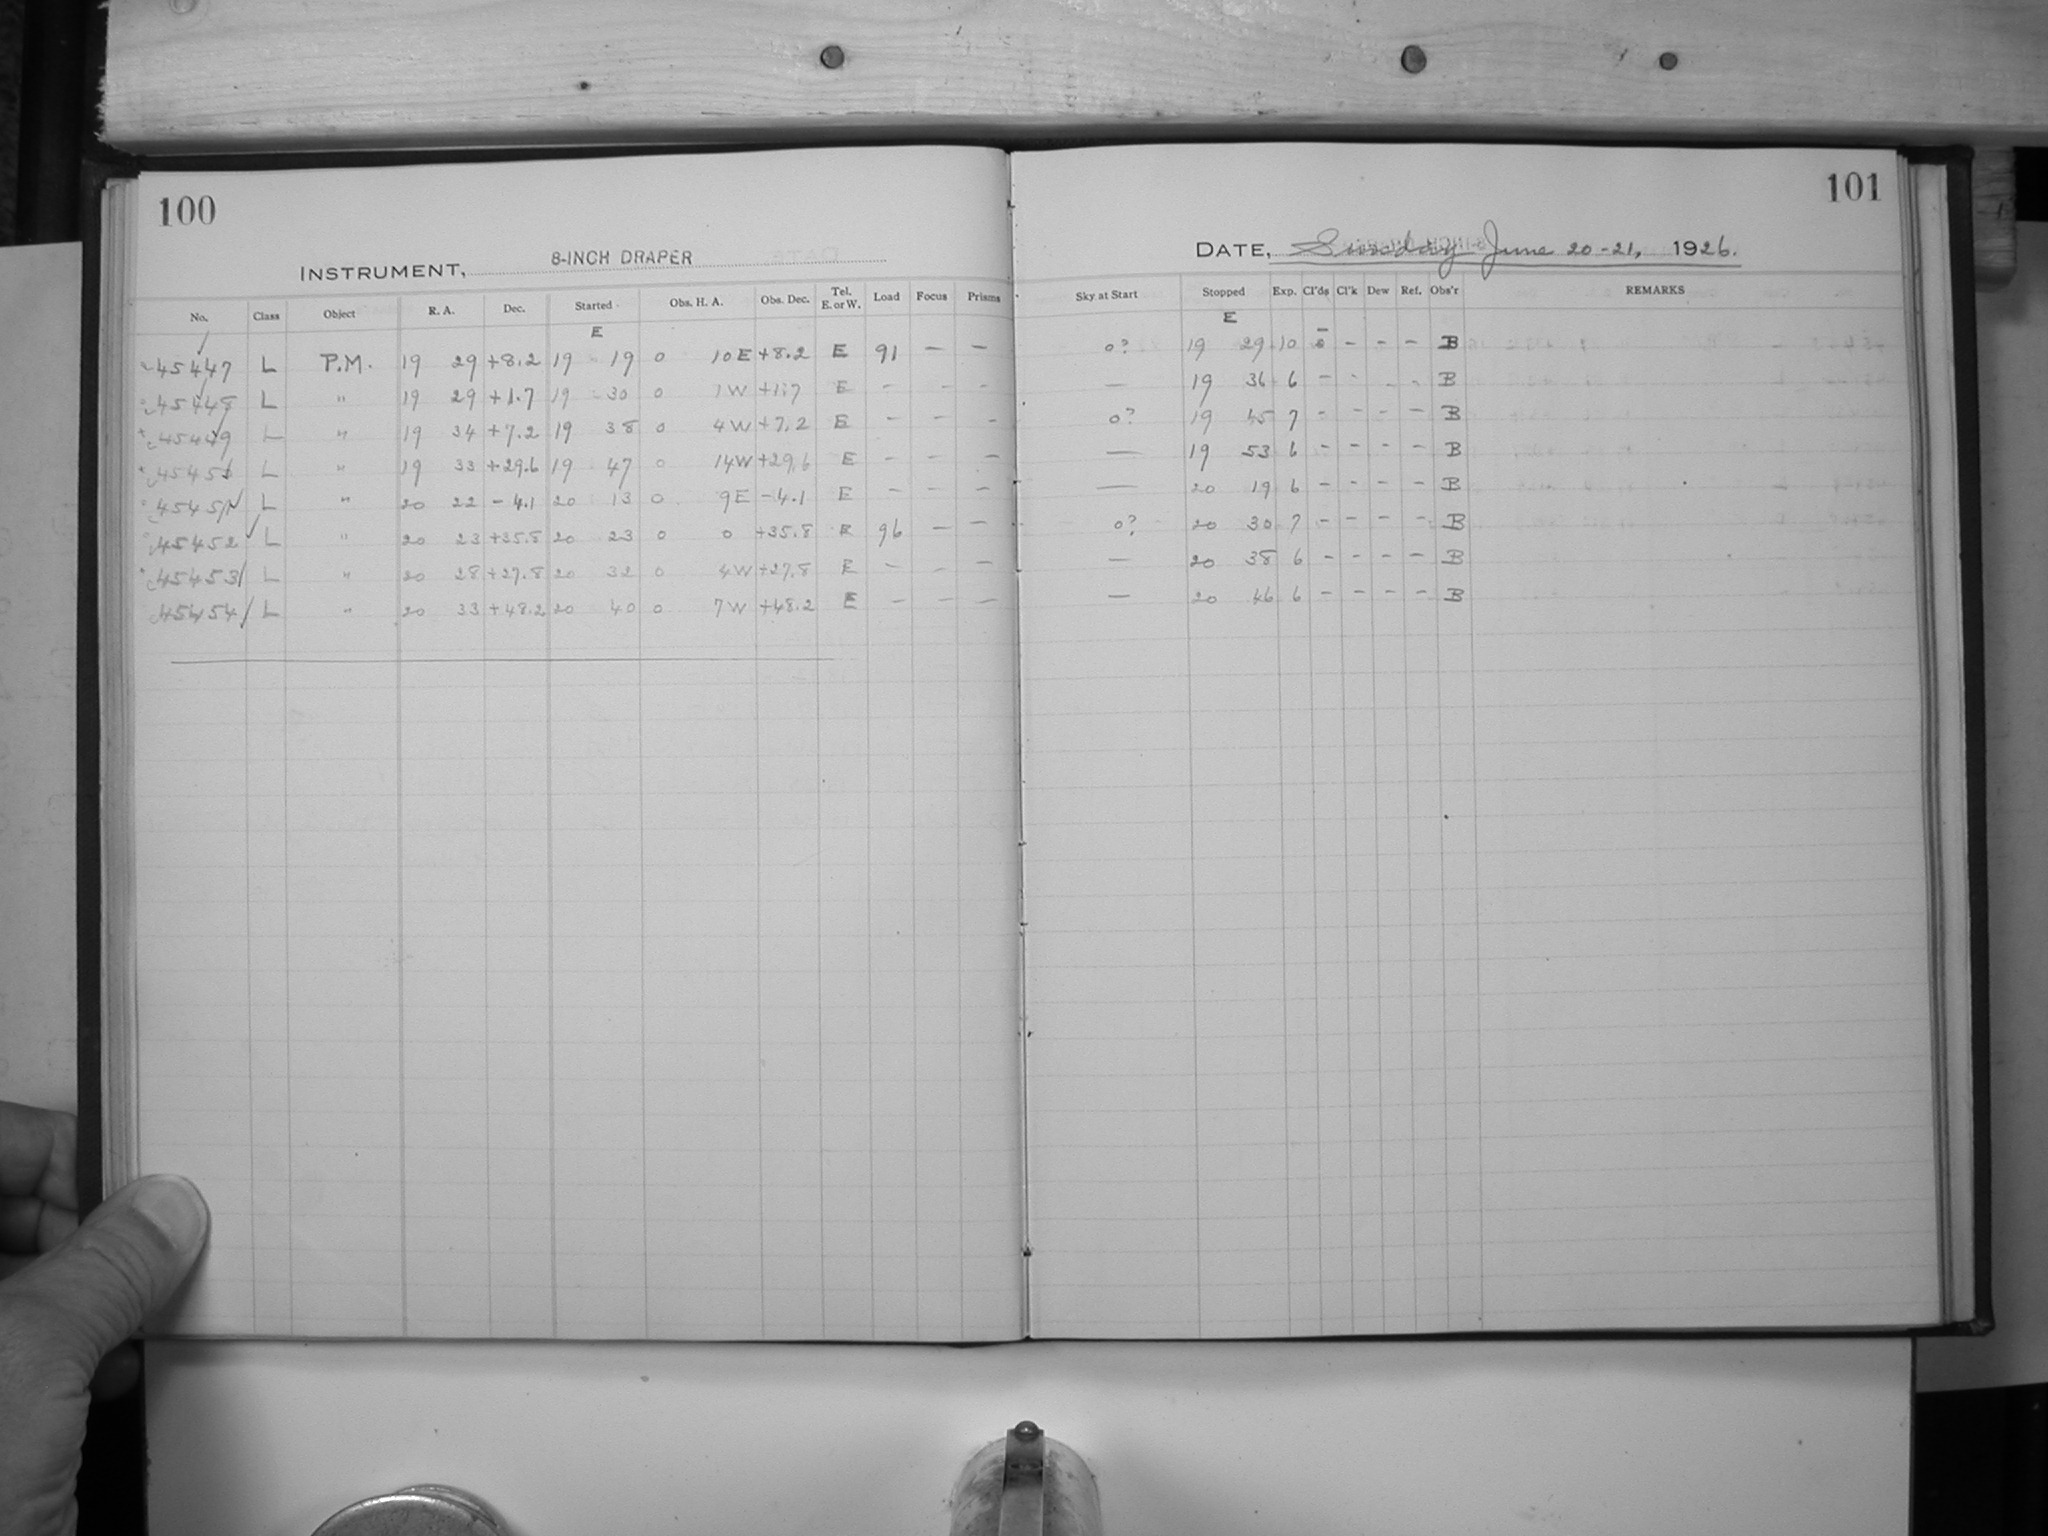 100
101
INSTRUMENT, 8-INCH DRAPER
DATE, Sunday June 20-21, 1926.
No. Class Object R. A. Dec. Started Obs. H. A. Obs. Dec. Tel. E. or W. Load Focus Prisms Sky at Start Stopped Exp. Cl'ds Cl'k Dew Ref. Obs'r REMARKS
E E
45447 L P.M. 19 29 +8.2 19 19 0 10E +8.2 E 91 — — 0? 19 29 10 - - - B
45448 L " 19 29 +1.7 19 30 0 1W +1.7 E - - - — 19 36 6 - - - - B
45449 L " 19 34 +7.2 19 38 0 4W +7.2 E - - - 0? 19 45 7 - - - - B
L " 19 33 +29.6 19 47 0 14W +29.6 E - - - — 19 53 6 - - - - B
45451 L " 20 22 -4.1 20 13 0 9E -4.1 E - - - — 20 19 6 - - - - B
45452 L " 20 23 +35.8 20 23 0 0 +35.8 E 96 - - 0? 20 30 7 - - - - B
45453 L " 20 28 +27.8 20 32 0 4W +27.8 E - - - — 20 38 6 - - - - B
45454 L " 20 33 +48.2 20 40 0 7W +48.2 E - - - — 20 46 6 - - - - B